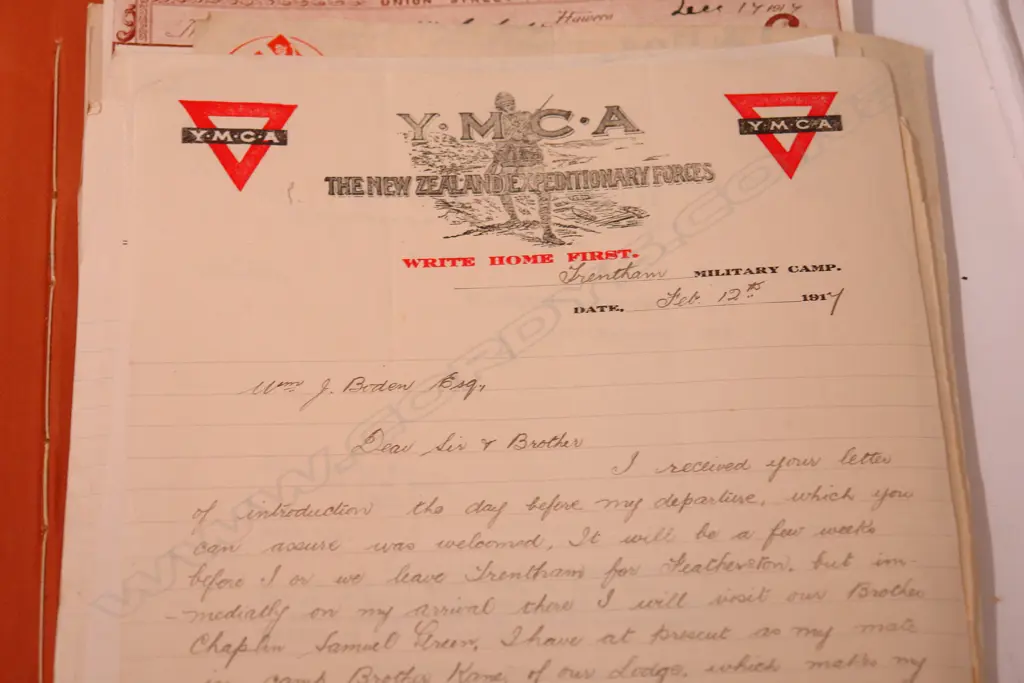 UNION STREET
Hawera
Dec 17 1917
Y·M·C·A
Y·M·C·A
Y·M·C·A
THE NEW ZEALAND EXPEDITIONARY FORCES
WRITE HOME FIRST.
Trentham MILITARY CAMP.
DATE, Feb. 12th 1917
Wm J. Boden Esq,
Dear Sir & Brother
I received your letter
of introduction the day before my departure, which you
can assure was welcomed, It will be a few weeks
before I or we leave Trentham for Featherston, but im-
-mediatly on my arrival there I will visit our Brother
Chaplin Samuel Green, I have at present as my mate
in camp Brother Kane, of our Lodge, which makes my